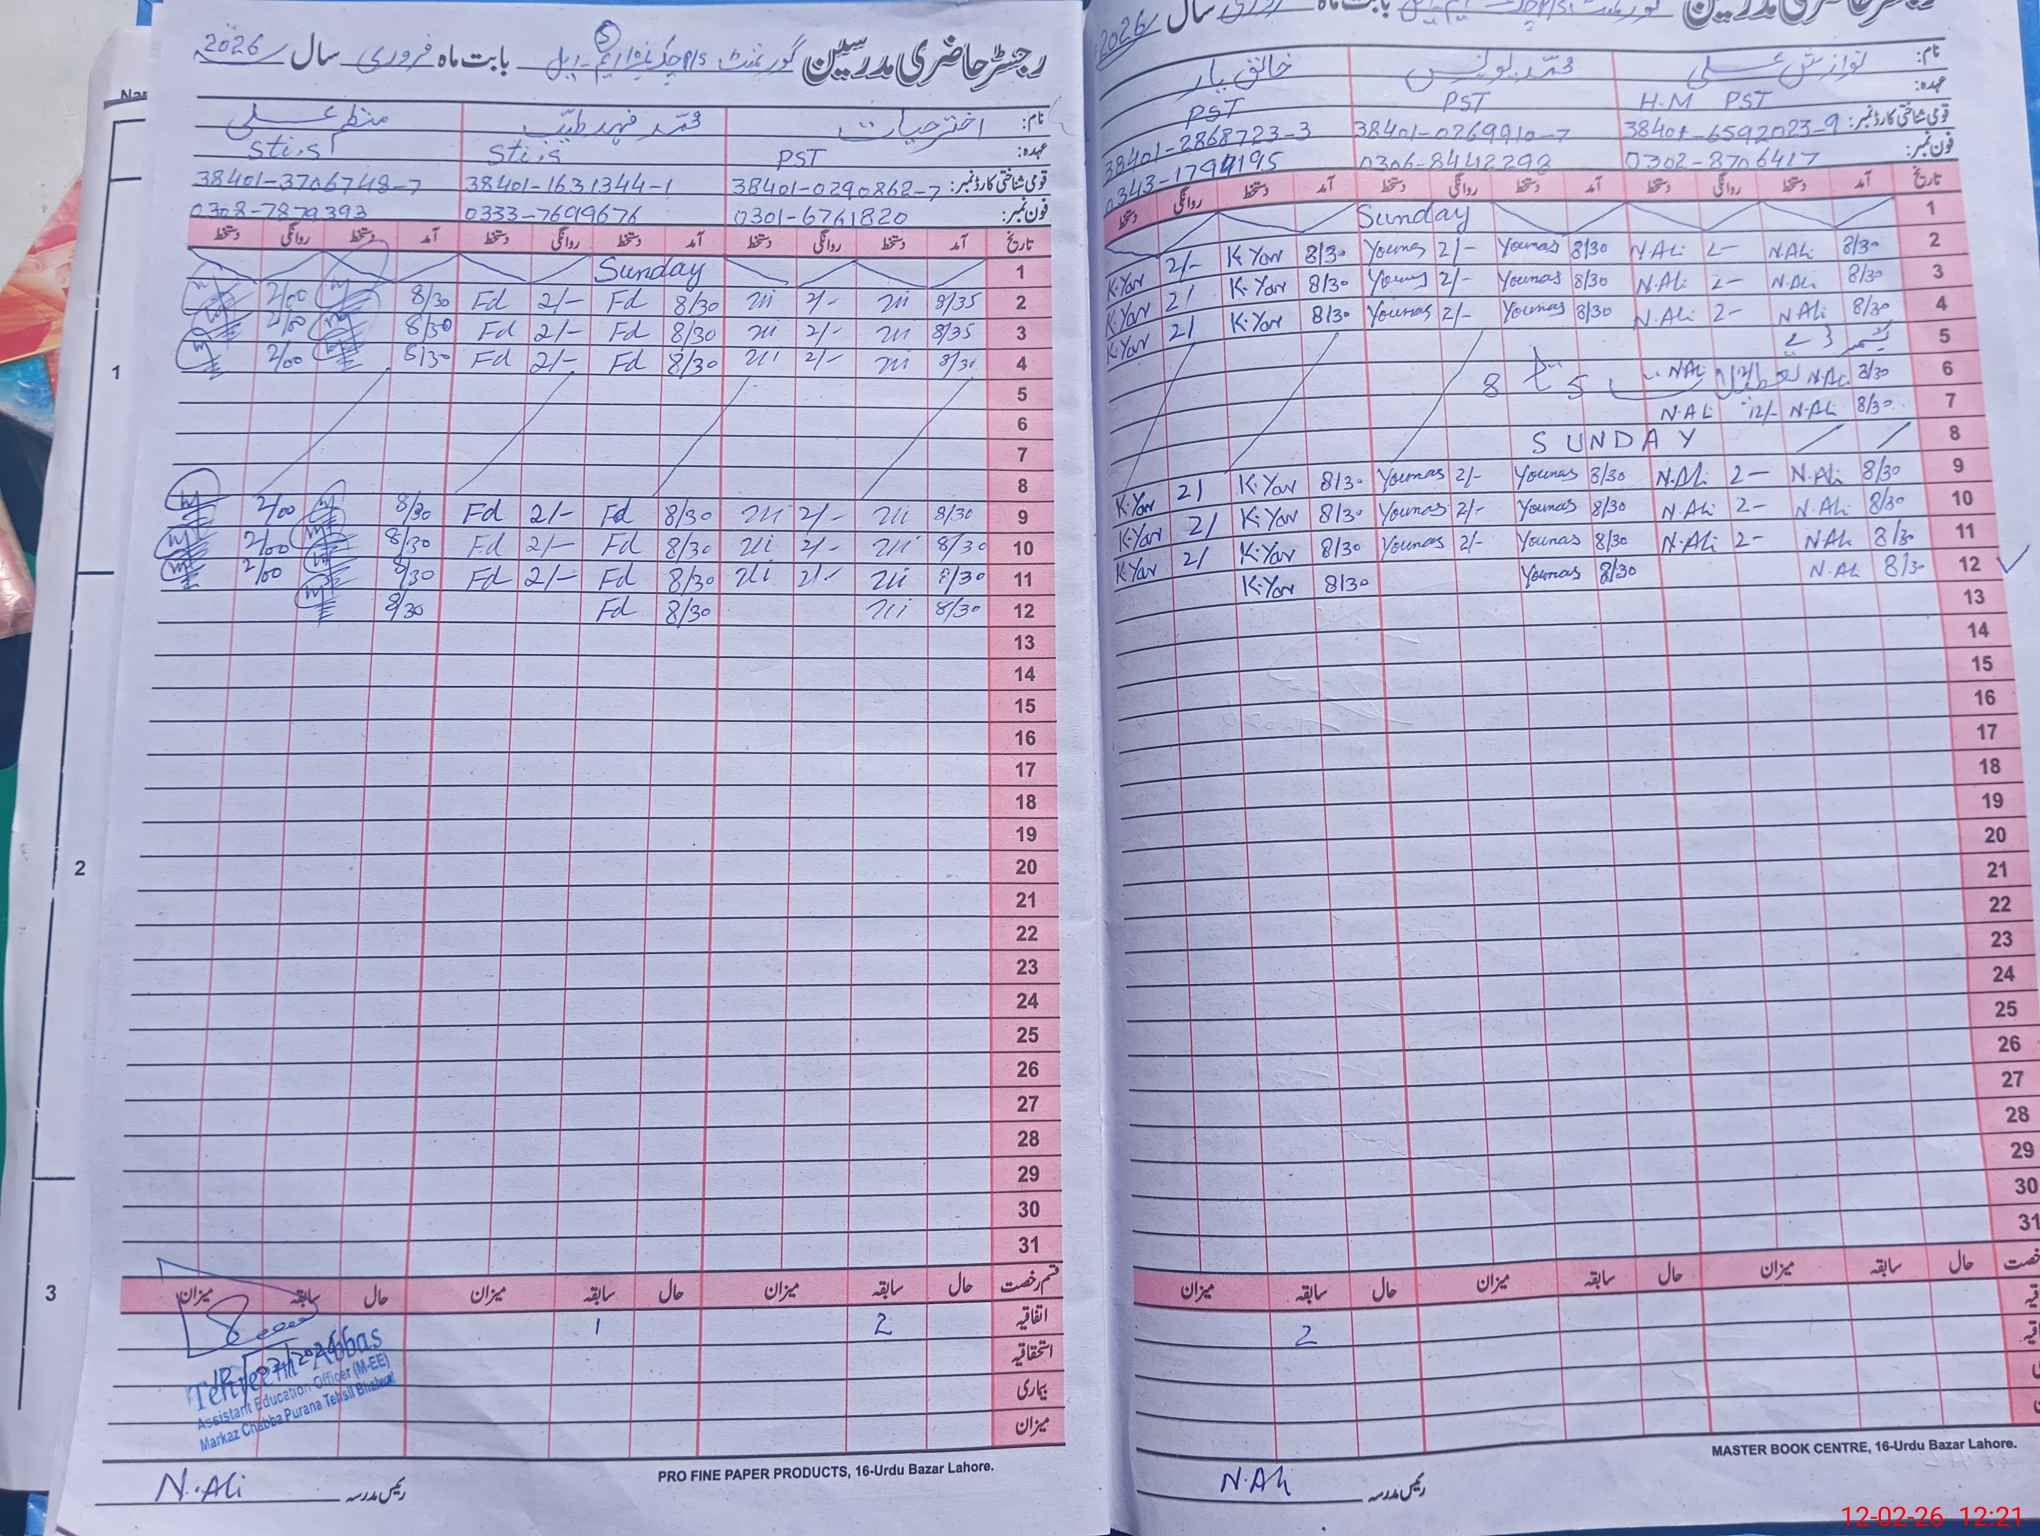 رجسٹر حاضری مدرسین گورنمنٹ P/S چک نمبر 10 ایم ایل بابت ماہ فروری سال 2026
نام: اختر حیات محمد فہد طیب منظم علی
عہدہ: PST Sti.s Sti.s
قومی شناختی کارڈ نمبر: 38401-0290862-7 38401-1631344-1 38401-3706748-7
فون نمبر: 0301-6761820 0333-7699676 0308-7879393
تاریخ آمد دستخط روانگی دستخط آمد دستخط روانگی دستخط آمد دستخط روانگی دستخط
1 Sunday
2 8/35 2/- 8/30 Fd 2/- Fd 8/30 2/00
3 8/35 2/- 8/30 Fd 2/- Fd 8/30 2/00
4 2/- 8/30 Fd 2/- Fd 8/30 2/00
5
6
7
8
9 8/30 2/- 8/30 Fd 2/- Fd 8/30 2/00
10 8/30 2/- 8/30 Fd 2/- Fd 8/30 2/00
11 8/30 2/- 8/30 Fd 2/- Fd 8/30 2/00
12 8/30 8/30 Fd 8/30
13
14
15
16
17
18
19
20
21
22
23
24
25
26
27
28
29
30
31
قسم رخصت حال سابقہ میزان حال سابقہ میزان حال سابقہ میزان
اتفاقیہ 2 1
استحقاقیہ
بیماری
میزان
Tehreem Abbas
Assistant Education Officer (M-EE)
Markaz Chabba Purana Tehsil Bhalwal
رئیس مدرسہ N.Ali
PRO FINE PAPER PRODUCTS, 16-Urdu Bazar Lahore.
رجسٹر حاضری مدرسین بابت ماہ فروری سال 2026
نام: نوازش علی محمد یونس خالق یار
عہدہ: H.M PST PST PST
قومی شناختی کارڈ نمبر: 38401-6592023-9 38401-0269910-7 38401-2868723-3
فون نمبر: 0302-8706417 0306-8442298 0343-1794195
تاریخ آمد دستخط روانگی دستخط آمد دستخط روانگی دستخط آمد دستخط روانگی دستخط
1 Sunday
2 8/30 N.Ali 2- N.Ali 8/30 Younas 2/- Younas 8/30 K.Yar 2/- K.Yar
3 8/30 N.Ali 2- N.Ali 8/30 Younas 2/- Younas 8/30 K.Yar 2/ K.Yar
4 8/30 N Ali 2- N.Ali 8/30 Younas 2/- Younas 8/30 K.Yar 2/ K.Yar
5 کشمیر ڈے
6 8/30 N.Ali N.Ali تعطیلات 5 تا 8
7 8/30 N.Ali 12/- N.Ali
8 SUNDAY
9 8/30 N.Ali 2- N.Ali 8/30 Younas 2/- Younas 8/30 K.Yar 2/ K.Yar
10 8/30 N.Ali 2- N.Ali 8/30 Younas 2/- Younas 8/30 K.Yar 2/ K.Yar
11 8/30 N.Ali 2- N.Ali 8/30 Younas 2/- Younas 8/30 K.Yar 2/ K.Yar
12 8/30 N.Ali 8/30 Younas 8/30 K.Yar
13
14
15
16
17
18
19
20
21
22
23
24
25
26
27
28
29
30
31
حال سابقہ میزان حال سابقہ میزان حال سابقہ میزان
2
MASTER BOOK CENTRE, 16-Urdu Bazar Lahore.
رئیس مدرسہ N.Ali
1
2
3
12-02-26 12:21